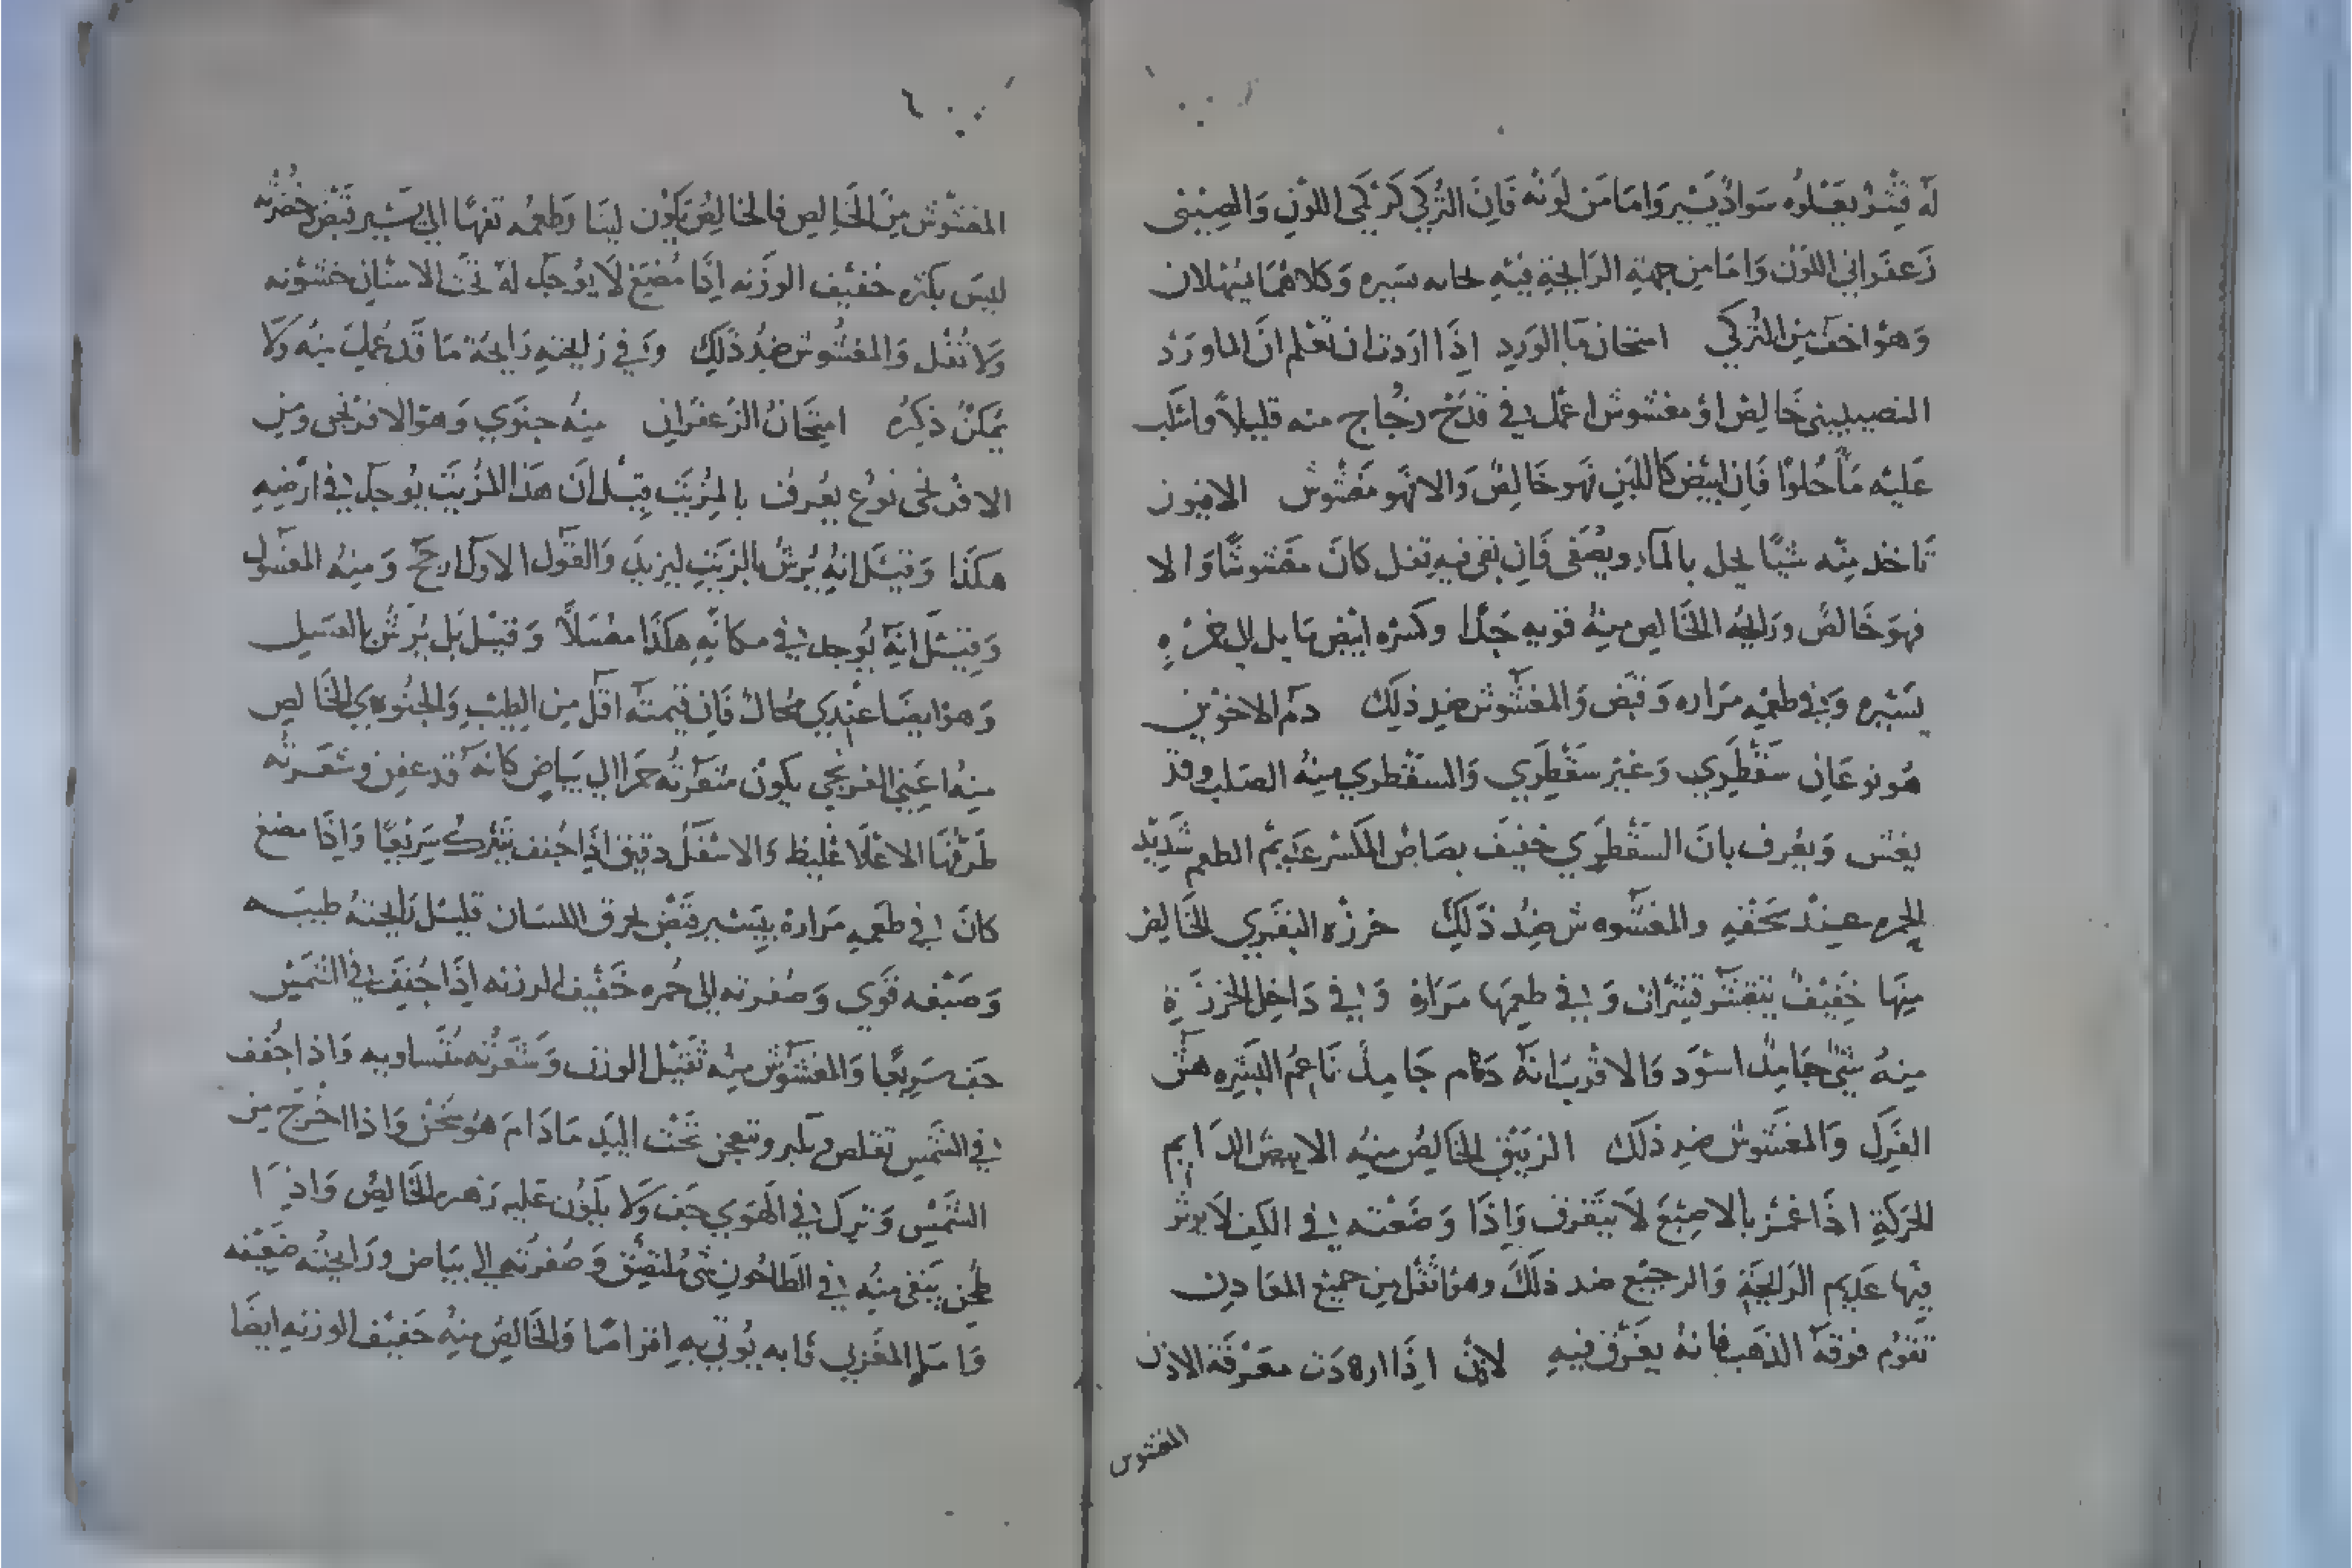 له قشر يعلوه سواد يسير واما من لونه فان التركي كركمي اللون والصيني
زعفراني اللون واما من جهة الرايحة فيه يسيره وكلاهما يسهلان
وهو اخف من التركي امتحان ما الورد اذا اردت ان تعلم ان الماورد
النصيبيني خالص او مغشوش اعمل في قدح زجاج منه قليلا واسكب
عليه ما حلوا فان ابيض كاللبن فهو خالص والا فهو مغشوش الافيون
تاخذ منه شيا يحل بالماء ويصفى فان بقى فيه تفل كان مغشوشا والا
فهو خالص ورايحة الخالص منه قويه جدا وكسره ابيض مايل الى حمره
يسيره وفي طعمه مراره وقبض والمغشوش ضد ذلك دم الاخوين
هو نوعان سقطري وغير سقطري والسقطري منه الصلب وقد
يغش ويعرف بان السقطري خفيف بصاص المكسر عديم الطعم شديد
الحمره عند سحقه والمغشوش ضد ذلك خرزه البقري الخالص
منها خفيف يتقشر قشران وفي طعمها مرارة وفي داخل الخرزة
منه شي جامد اسود والاقرب انه دم جامد ناعم البشره هش
الفرك والمغشوش ضد ذلك الزيبق الخالص منه الابيض الدايم
الحركة اذا غمز بالاصبع لا يتفرق واذا وضعته في الكف لا يوثر
فيها عديم الرايحة والرجيع ضد ذلك وهو اثقل من جميع المعادن
تقوم فوقه الذهب فانه يغرق فيه لادن اذا اردت معرفة الادن
المغشوش
المغشوش من الخالص فالخالص يكون لينا وطعمه تفها الى يسير قبض خضرته
ليس بكتره خفيف الوزنه اذا مضغ لا يوجد له تحت الاسنان خشونه
ولا تفل والمغشوش ضد ذلك وفي رايحته رايحة ما قد عمل منه ولا
يمكن ذكره امتحان الزعفران منه جنوي وهو الافرنجى ومن
الافرنجى نوع يعرف بالمزيت قيل ان هذا المزيت يوجد في ارضيه
هكذا وقيل انه يرش بالزيت ليزيد والقول الاول ارجح ومنه المعسول
وقيل انه يوجد في مكانه هكذا معسلا وقيل بل يرش بالعسل
وهو ايضا عندي محال فان قيمته اقل من الطيب والجنوي الخالص
منه اعني الفرنجي يكون شعرته حمرا الى بياض كانه قد عفن وشعرته
طرفها الاعلا غليظ والاسفل دقيق اذا جفف يتفرك سريعا واذا مضغ
كان في طعمه مرارة بيسير قبض يحرق اللسان قليل رايحته طيبه
وصبغه قوي وصفرته الى حمره خفيف الوزنه اذا جفف في الشمس
جف سريعا والمغشوش منه ثقيل الوزن وشعرته متساويه واذا جفف
في الشمس تقلص وتعجن تحت اليد ما دام هو سخن واذا اخرج من
الشمس وترك في الهوى جف ولا يكون عليه زهره الخالص واذا
طحن يبقى منه في الطاحون شي ملتصق وصفرته الى بياض ورايحته ضعيفه
واما المغربي فانه يوتي به اقراصا والخالص منه خفيف الوزنه ايضا